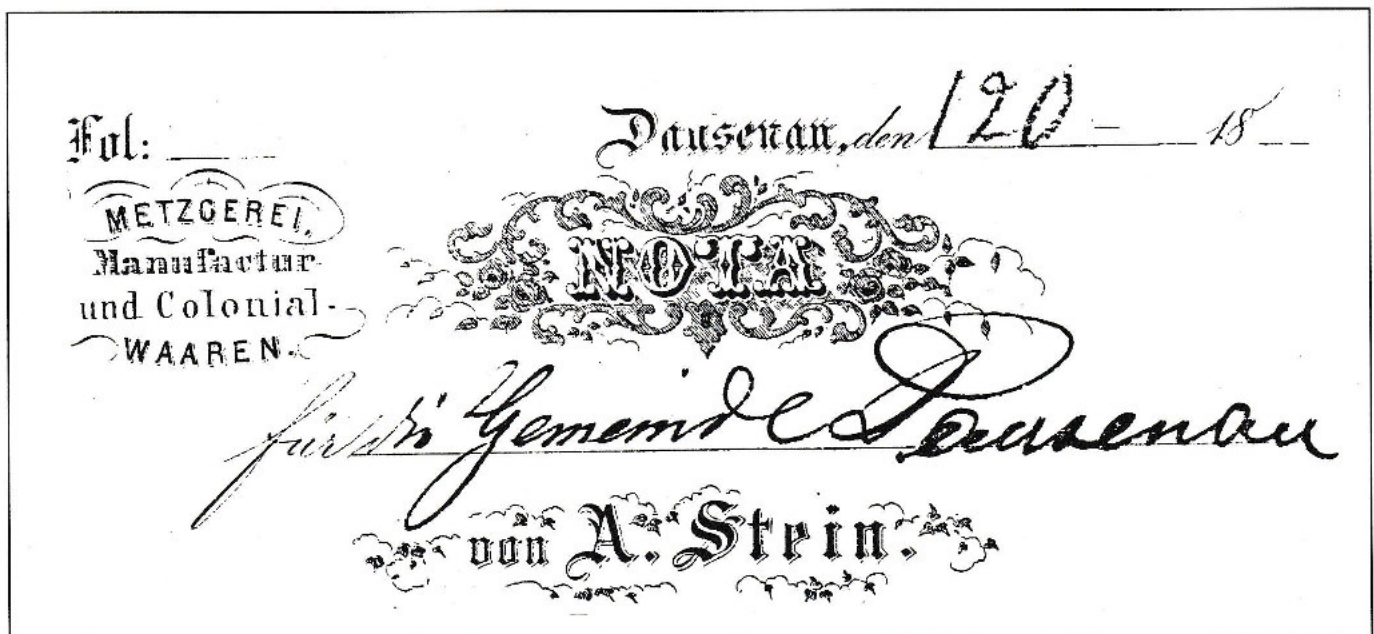 Fol:
Dausenau, den 120 - 18
METZGEREI,
Manufactur-
und Colonial-
WAAREN.
NOTA
für die Gemeinde Dausenau
von A. Stein.